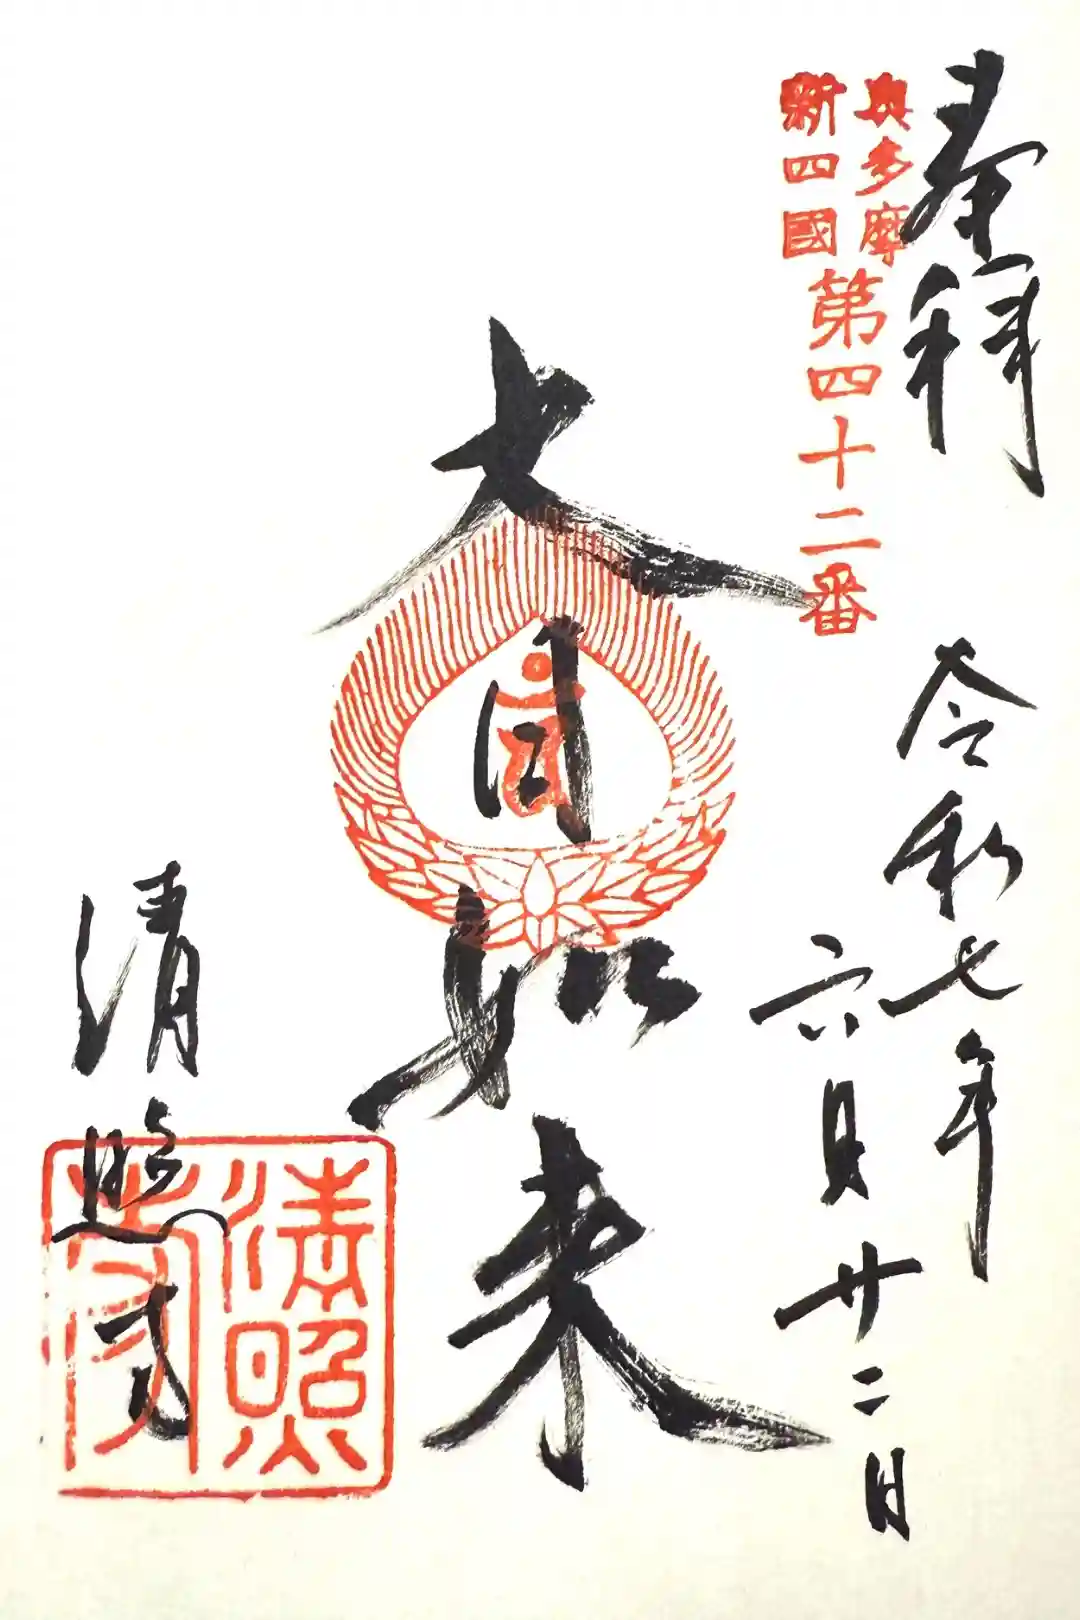 奉拝
奥多摩
新四國
第四十二番
令和七年
六月廿二日
大日如来
清照寺
清照
寺